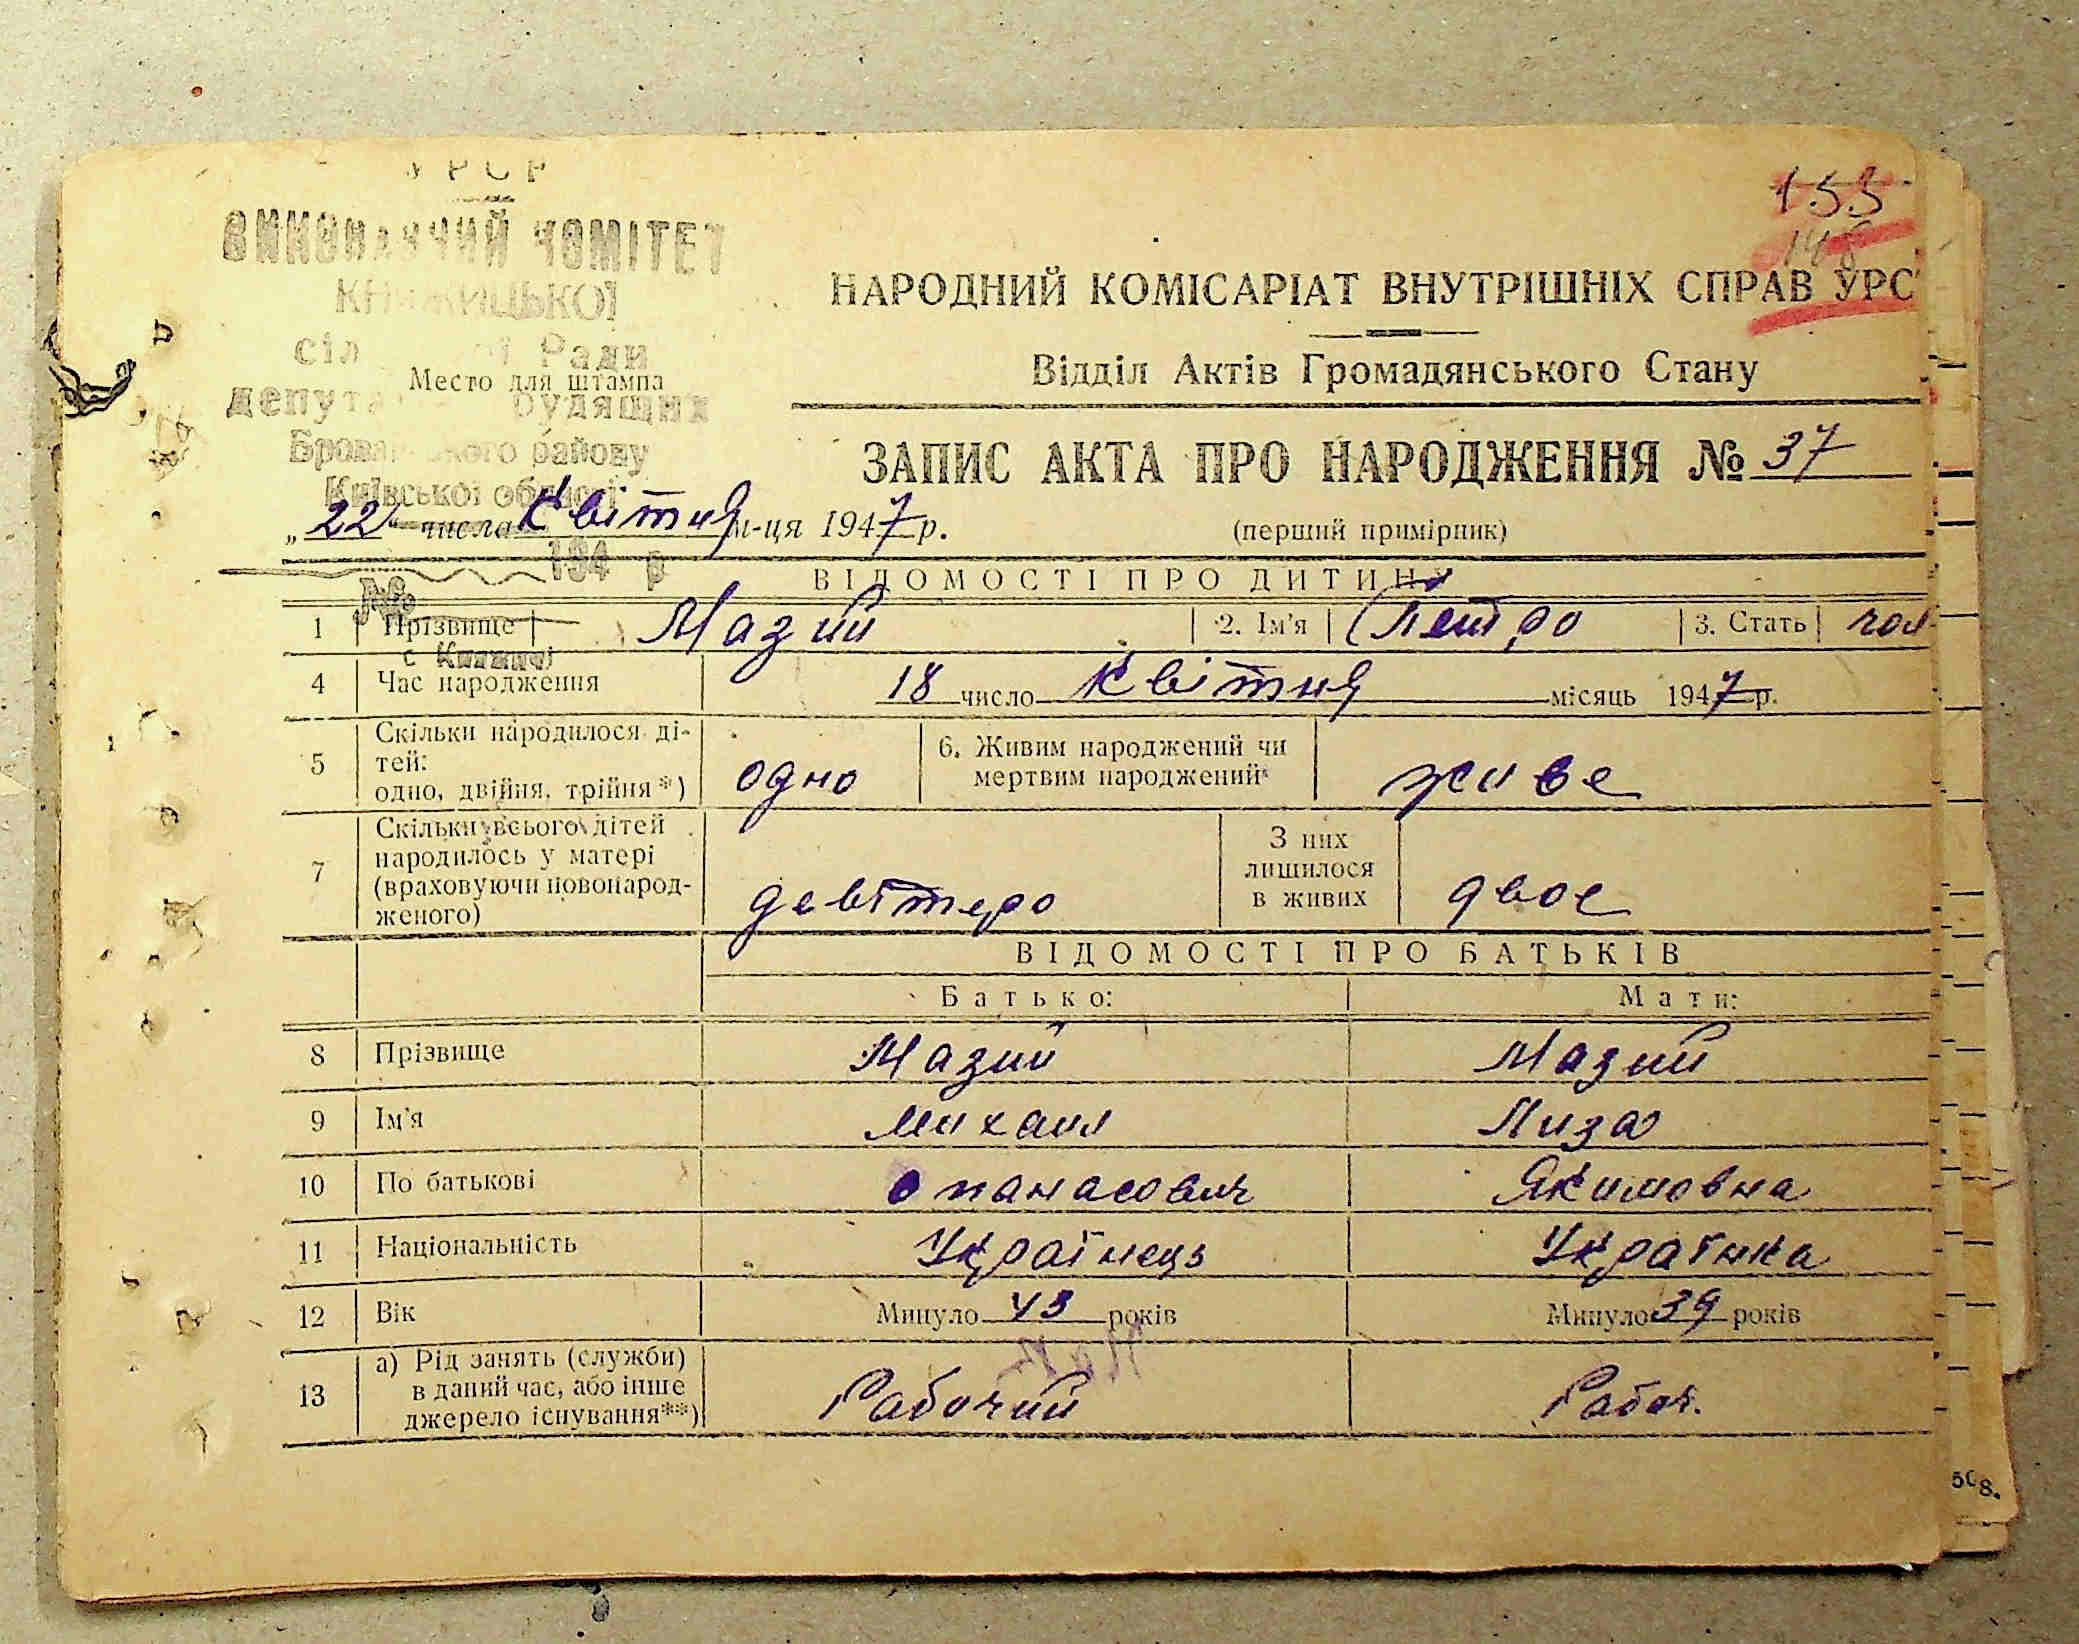 УРСР
ВИКОНАВЧИЙ КОМІТЕТ
КНЯЖИЦЬКОЇ
сіл Ради
Место для штампа
депут трудящих
Броварського району
Київської області
155
148
НАРОДНИЙ КОМІСАРІАТ ВНУТРІШНІХ СПРАВ УРС
Відділ Актів Громадянського Стану
ЗАПИС АКТА ПРО НАРОДЖЕННЯ № 37
„22“ числа Квітня м-ця 1947 р. (перший примірник)
194 р
№
ВІДОМОСТІ ПРО ДИТИНУ
1 Прізвище Мазий 2. Ім'я Петро 3. Стать чол
с Княжичі
4 Час народження 18 число Квітня місяць 1947 р.
5 Скільки народилося ді-
тей:
одно, двійня, трійня*) одно 6. Живим народжений чи
мертвим народжений живе
7 Скільки всього дітей
народилось у матері
(враховуючи новонарод-
женого) девітеро З них
лишилося
в живих двое
ВІДОМОСТІ ПРО БАТЬКІВ
Батько: Мати:
8 Прізвище Мазий Мазий
9 Ім'я Михаил Лиза
10 По батькові Опанасович Якимовна
11 Національність Українець Українка
12 Вік Минуло 43 років Минуло 39 років
13 а) Рід занять (служби)
в даний час, або інше
джерело існування**) Рабочий Рабоч.
508.